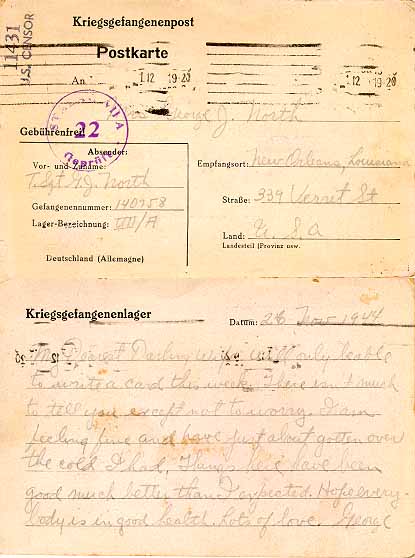 Kriegsgefangenenpost
11431
U.S. CENSOR
Postkarte
An
12 19-20
12 19-20
George J. North
VII A
22
Geprüft
Gebührenfrei
Absender:
Vor- und Zuname:
T/Sgt G.J. North
Gefangenennummer: 140758
Lager-Bezeichnung: VII/A
Deutschland (Allemagne)
Empfangsort: New Orleans, Louisiana
Straße: 339 Verret St
Land: U. S. A
Landesteil (Provinz usw.
Kriegsgefangenenlager
Datum: 26 Nov 1944
My Dearest Darling Wife, Will only be able
to write a card this week. There isn't much
to tell you except not to worry. I am
feeling fine and have just about gotten over
the cold I had, Things here have been
good much better than I expected. Hope every-
body is in good health. Lots of love. George